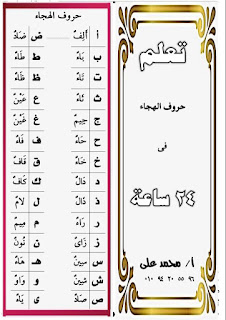 تعلم
حروف الهجاء
فى
٢٤ ساعة
أ/ محمد على
٠١٠ ٩٤ ٢٠ ٥٥ ٩٦
حروف الهجاء
أ أَلِفٌ ض ضَادٌ
ب بَاءٌ ط طَاءٌ
ت تَاءٌ ظ ظَاءٌ
ث ثَاءٌ ع عَيْنٌ
ج جِيمٌ غ غَيْنٌ
ح حَاءٌ ف فَاءٌ
خ خَاءٌ ق قَافٌ
د دَالٌ ك كَافٌ
ذ ذَالٌ ل لامٌ
ر رَاءٌ م مِيمٌ
ز زَاىٌ ن نُونٌ
س سِينٌ هـ هَاءٌ
ش شِينٌ و وَاوٌ
ص صَادٌ ى يَاءٌ